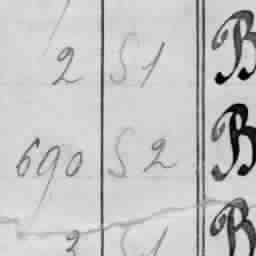 2 S1 B
690 S2 B
2 S1 B